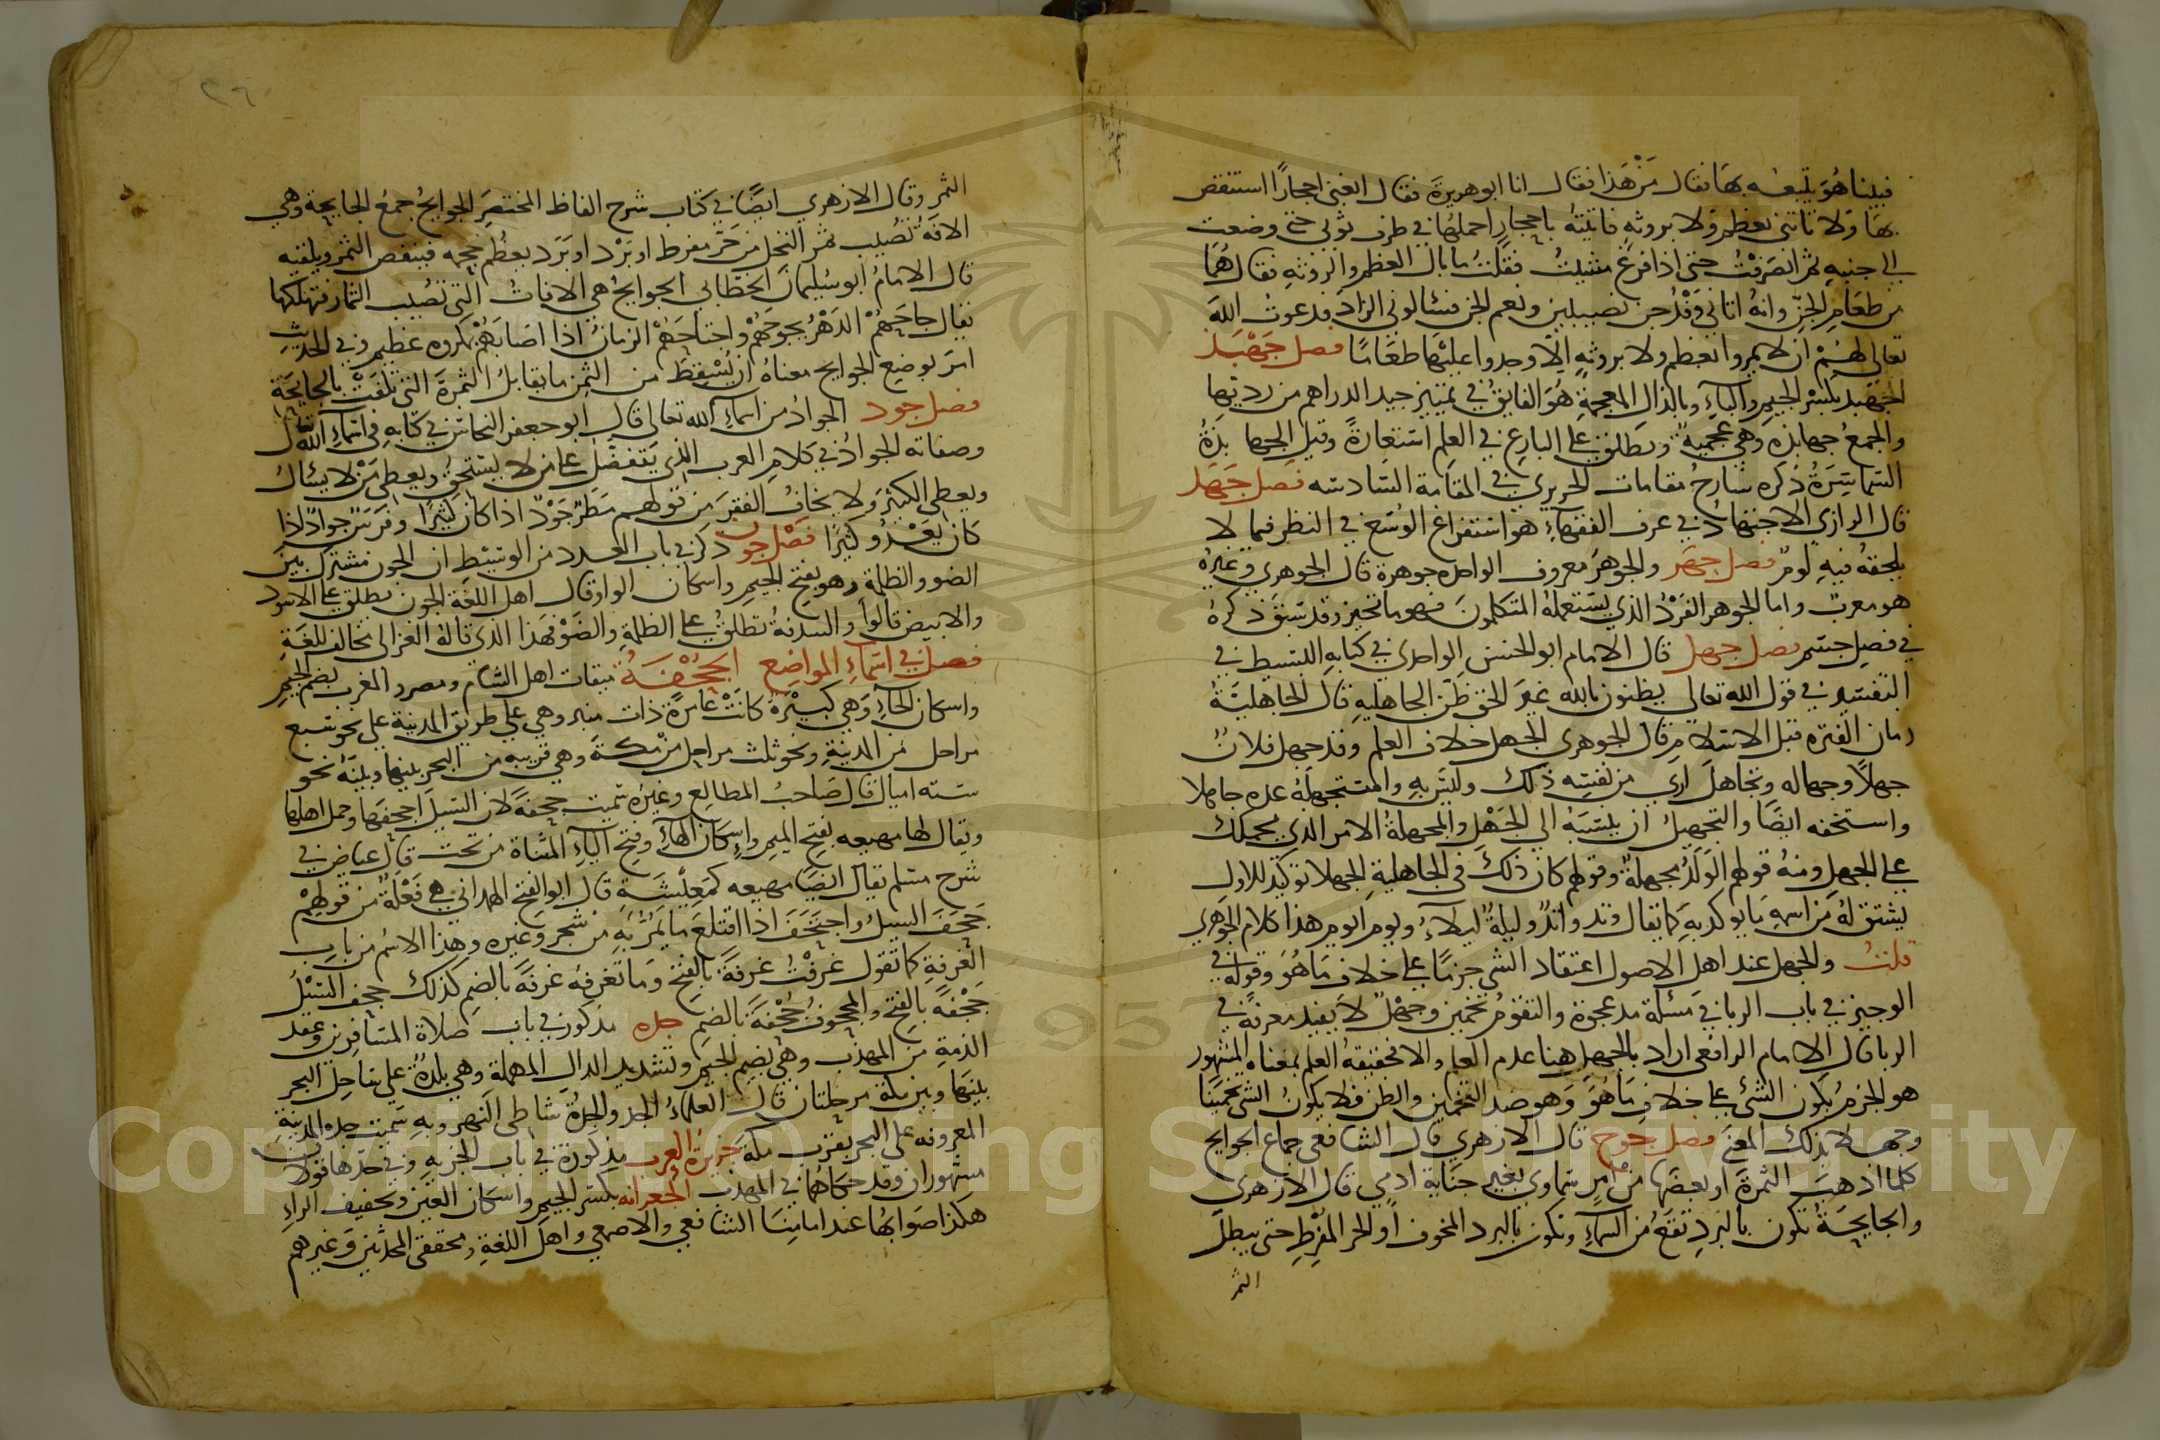 فبينا هو يتبعه بها فقال من هذا فقال انا ابو هريرة فقال ابغنى احجارًا استنفض
بها ولا تاتنى بعظم ولا بروثه فاتيته باحجار احملها في طرف ثوبى حتى وضعت
الى جنبه ثم انصرفت حتى اذا فرغ مشيت فقلت ما بال العظم والروثه فقال هما
من طعام الجن وانه اتانى وفد جن نصيبين ونعم الجن فسالونى الزاد فدعوت الله
تعالى لهم ان لا يمروا بعظم ولا بروثه الا وجدوا عليها طعامًا فصل جهبذ
الجهبذ بكسر الجيم والباء وبالذال المعجمة هو الفايق في تمييز جيد الدراهم من رديها
والجمع جهابذه وهي عجمية وتطلق على البارع في العلم استعارةً وقيل الجهابذة
السماسرة ذكره شارح مقامات الحريرى في المقامة السادسه فصل جهد
قال الرازى الاجتهاد في عرف الفقهاء هو استفراغ الوسع في النظر فيما لا
يلحقه فيه لوم فصل جهر والجوهر معروف الواحده جوهرة قال الجوهري وغيره
هو معرب واما الجوهر الفرد الذي يستعمله المتكلمون فهو ما تحيز وقد سبق ذكره
في فصل جسم فصل جهل قال الامام ابو الحسن الواحدى في كتابه البسيط في
التفسير في قول الله تعالى يظنون بالله غير الحق ظن الجاهليه قال الجاهلية
زمان الفتره قبل الاسلام قال الجوهري الجهل خلاف العلم وقد جهل فلان
جهلًا وجهاله وتجاهل ارى من نفسه ذلك وليس به والمستجهله عده جاهلا
واستخفه ايضًا والتجهيل ان ينسبه الى الجهل والمجهلة الامر الذي يحملك
على الجهل ومنه قولهم الولد مجهلة وقولهم كان ذلك في الجاهلية الجهلا توكيد للاول
يشتق له من اسمه ما يوكد به كما يقال وتد واتد وليلة ليلاء ويوم ايوم هذا كلام الجوهري
قلت والجهل عند اهل الاصول اعتقاد الشى جزمًا على خلاف ما هو وقوله في
الوجيز في باب الربا في مسئلة مد عجوة والتقويم تخمين وجهل لا يفيد معرفة في
الربا قال الامام الرافعى اراد بالجهل هنا عدم العلم والا فحقيقة العلم بمعناه المشهور
هو الجزم بكون الشئ على خلاف ما هو وهو ضد التخمين والظن فلا يكون الشى تخمينًا
وجهلًا بذلك المعنى فصل جوح قال الازهري قال الشافعى جماع الجوايح
كلما اذهب الثمرة او بعضها من امر سماوى بغير جناية ادمي قال الازهرى
والجايحة تكون بالبرد تقع من السماء وتكون بالبرد المخوف او الحر المفرط حتى يبطل
الثمر
٢٦
الثمر وقال الازهري ايضًا في كتاب شرح الفاظ المختصر الجوايح جمع الجايحة وهي
الافة تصيب ثمر النخل من حر مفرط او برد او برد يعظم حجمه فينفض الثمر ويلقيه
قال الامام ابو سليمان الخطابى الجوايح هي الافات التي تصيب الثمار فتهلكها
يقال جاحهم الدهر يجوحهم واجتاحهم الزمان اذا اصابهم بمكروه عظيم وفي الحديث
امر بوضع الجوايح معناه ان يسقط من الثمن ما يقابل الثمرة التي تلفت بالجايحة
فصل جود الجواد من اسماء الله تعالى قال ابو جعفر النحاس في كتابه في اسماء الله تعالى
وصفاته الجواد في كلام العرب الذي يتفضل على من لا يستحق ويعطى من لا يسال
ويعطى الكثير ولا يخاف الفقر من قولهم مطر جود اذا كان كثيرًا وفرس جواد اذا
كان يعدو كثيرًا فصل جون ذكر في باب العدد من الوسيط ان الجون مشترك بين
الضو والظلمة وهو بفتح الجيم واسكان الواو قال اهل اللغة الجون يطلق على الاسود
والابيض قالوا والسدفة تطلق على الظلمة والضو فهذا الذى قاله الغزالى مخالف للغة
فصل في اسماء المواضع الجحفة ميقات اهل الشام ومصر والمغرب بضم الجيم
واسكان الحاء وهي كبيرة كانت عامرة ذات منبر وهي على طريق المدينة على نحو سبع
مراحل من المدينة ونحو ثلث مراحل من مكة وهي قريبه من البحر بينها وبينه نحو
سته اميال قال صاحب المطالع وغيره سميت جحفة لان السيل اجحفها وحمل اهلها
ويقال لها مهيعه بفتح الميم واسكان الهاء وفتح الياء المثناة من تحت قال عياض في
شرح مسلم يقال ايضًا مهيعه كمعيشة قال ابو الفتح الهمدانى هي فعلة من قولهم
جحف السيل واجتحف اذا اقتلع ما يمر به من شجر وغيره وهذا الاسم من باب
الغرفة كما تقول غرفت غرفة بالفتح وما تغرفه غرفة بالضم كذلك جحف السيل
جحفة بالفتح والمجحوف جحفة بالضم جده مذكور في باب صلاة المسافرين وعقد
الذمة من المهذب وهي بضم الجيم وتشديد الدال المهملة وهي بلدة على ساحل البحر
بينها وبين مكة مرحلتان قال العلماء الجد والجدة شاطى النهر وبه سميت جده المدينة
المعروفه على البحر بقرب مكة جزيرة العرب مذكورة في باب الجزيه وفي حدها قولان
مشهوران وقد حكاهما في المهذب الجعرانه بكسر الجيم واسكان العين وتخفيف الراء
هكذا صوابها عند امامنا الشافعي والاصمعي واهل اللغة ومحققى المحدثين وغيرهم
Copyright © King Saud University
1957